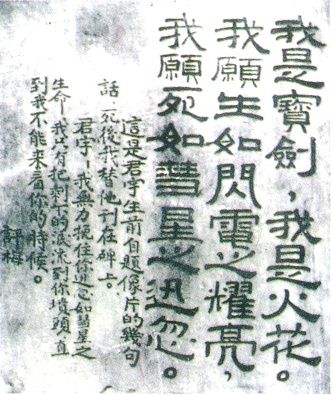 我是寶劍，我是火花。
我願生如閃電之耀亮，
我願死如彗星之迅忽。
這是君宇生前自題像片的幾句
話，死後我替他刊在碑上。
君宇！我無力挽住你迅忽如彗星之
生命，我只有把剩下的淚流到你墳頭，直
到我不能來看你的時候。
評梅